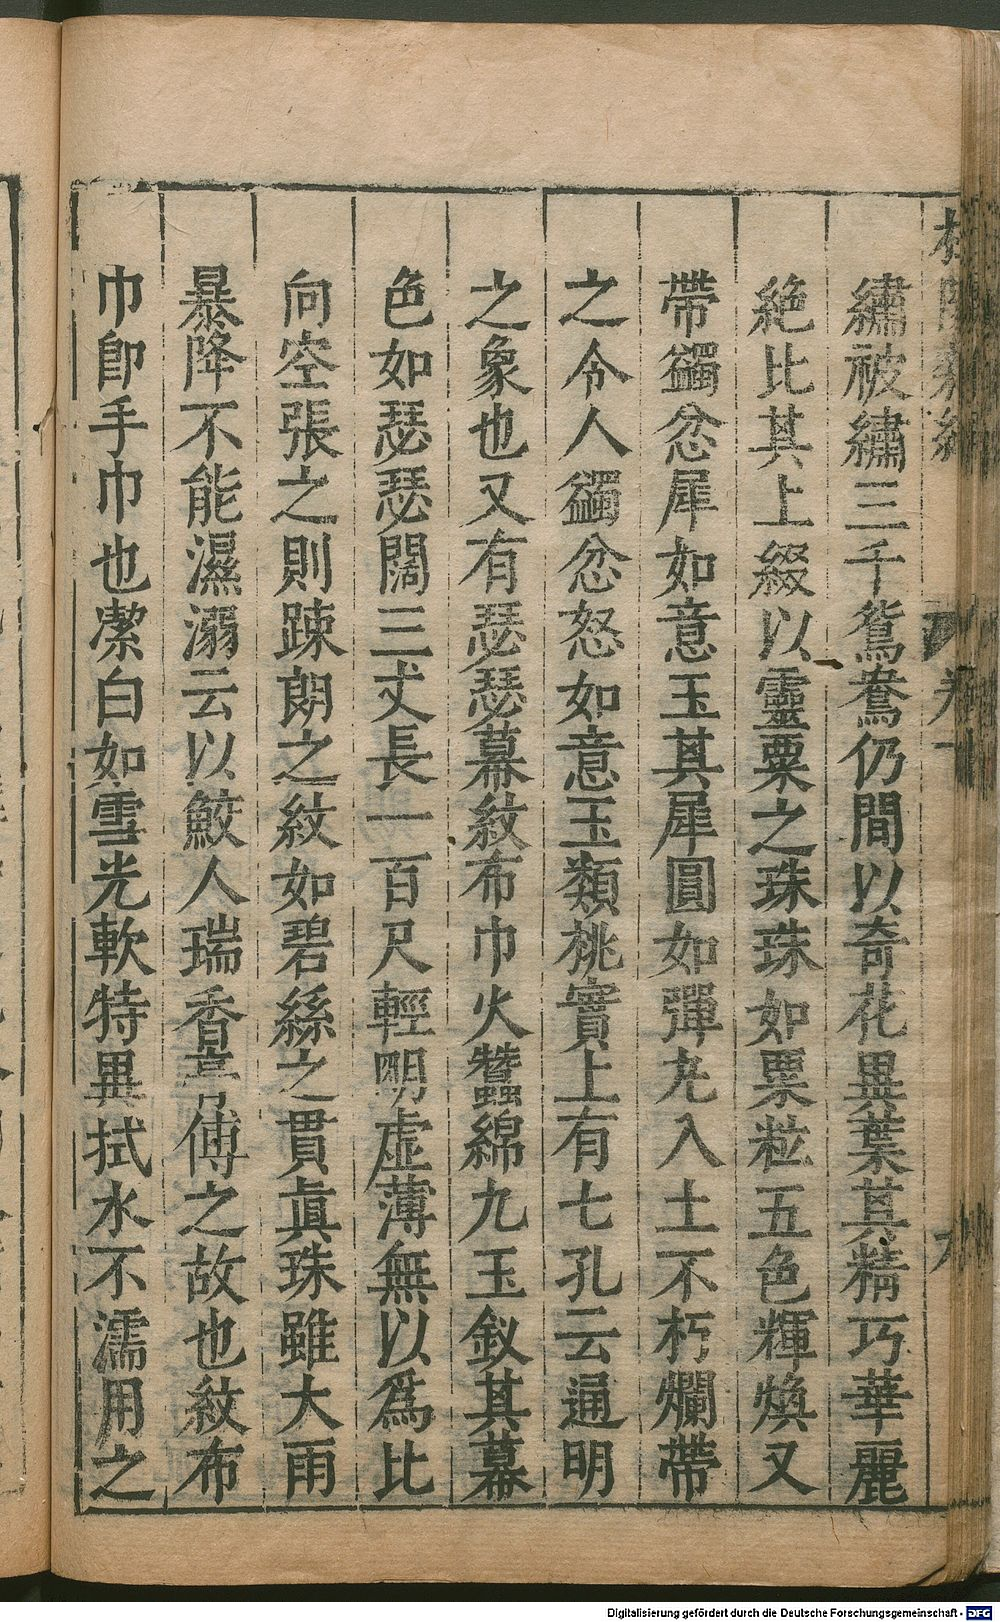 繡被繡三千鴛鴦仍間以奇花異葉其精巧華麗
絶比其上綴以靈粟之珠珠如粟粒五色輝煥又
帶蠲忿犀如意玉其犀圓如彈丸入土不朽爛帶
之令人蠲忿怒如意玉類桃實上有七孔云通明
之象也又有瑟瑟幕紋布巾火蠶綿九玉釵其幕
色如瑟瑟闊三丈長一百尺輕明虛薄無以爲比
向空張之則踈朗之紋如碧絲之貫眞珠雖大雨
暴降不能濕溺云以鮫人瑞香膏傅之故也紋布
巾卽手巾也潔白如雪光軟特異拭水不濡用之
卷
九
Digitalisierung gefördert durch die Deutsche Forschungsgemeinschaft - DFG